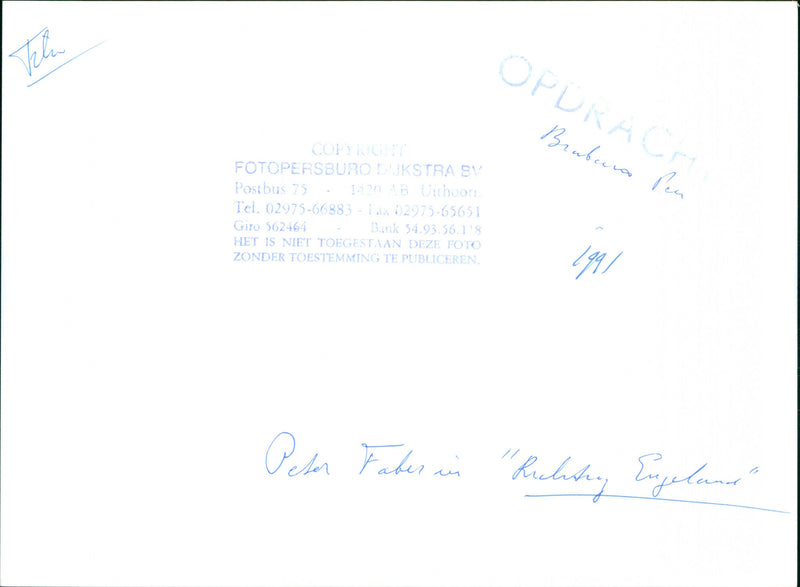 OPDRACHT
Brabants Pers
1991
COPYRIGHT
FOTOPERSBURO DIJKSTRA BV
Postbus 75 - 1420 AB Uithoorn.
Tel. 02975-66883 - Fax 02975-65651
Giro 562464 - Bank 54.93.56.118
HET IS NIET TOEGESTAAN DEZE FOTO
ZONDER TOESTEMMING TE PUBLICEREN.
Peter Faber in "Richting Engeland"